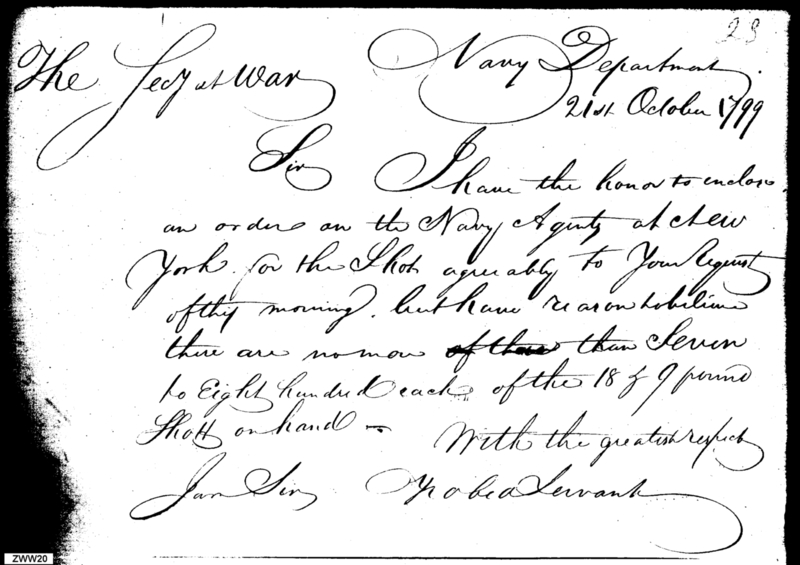 23
The Secy at War
Navy Department.
21st October 1799
Sir
I have the honor to enclose
an order on the Navy Agents at New
York for the Shot agreeably to Your Request
of this morning, but have reason to believe
there are no more of those than Seven
to Eight hundred each of the 18 & 9 pound
Shott on hand —
With the greatest respect
I am Sir
Yr obed Servant
ZWW20